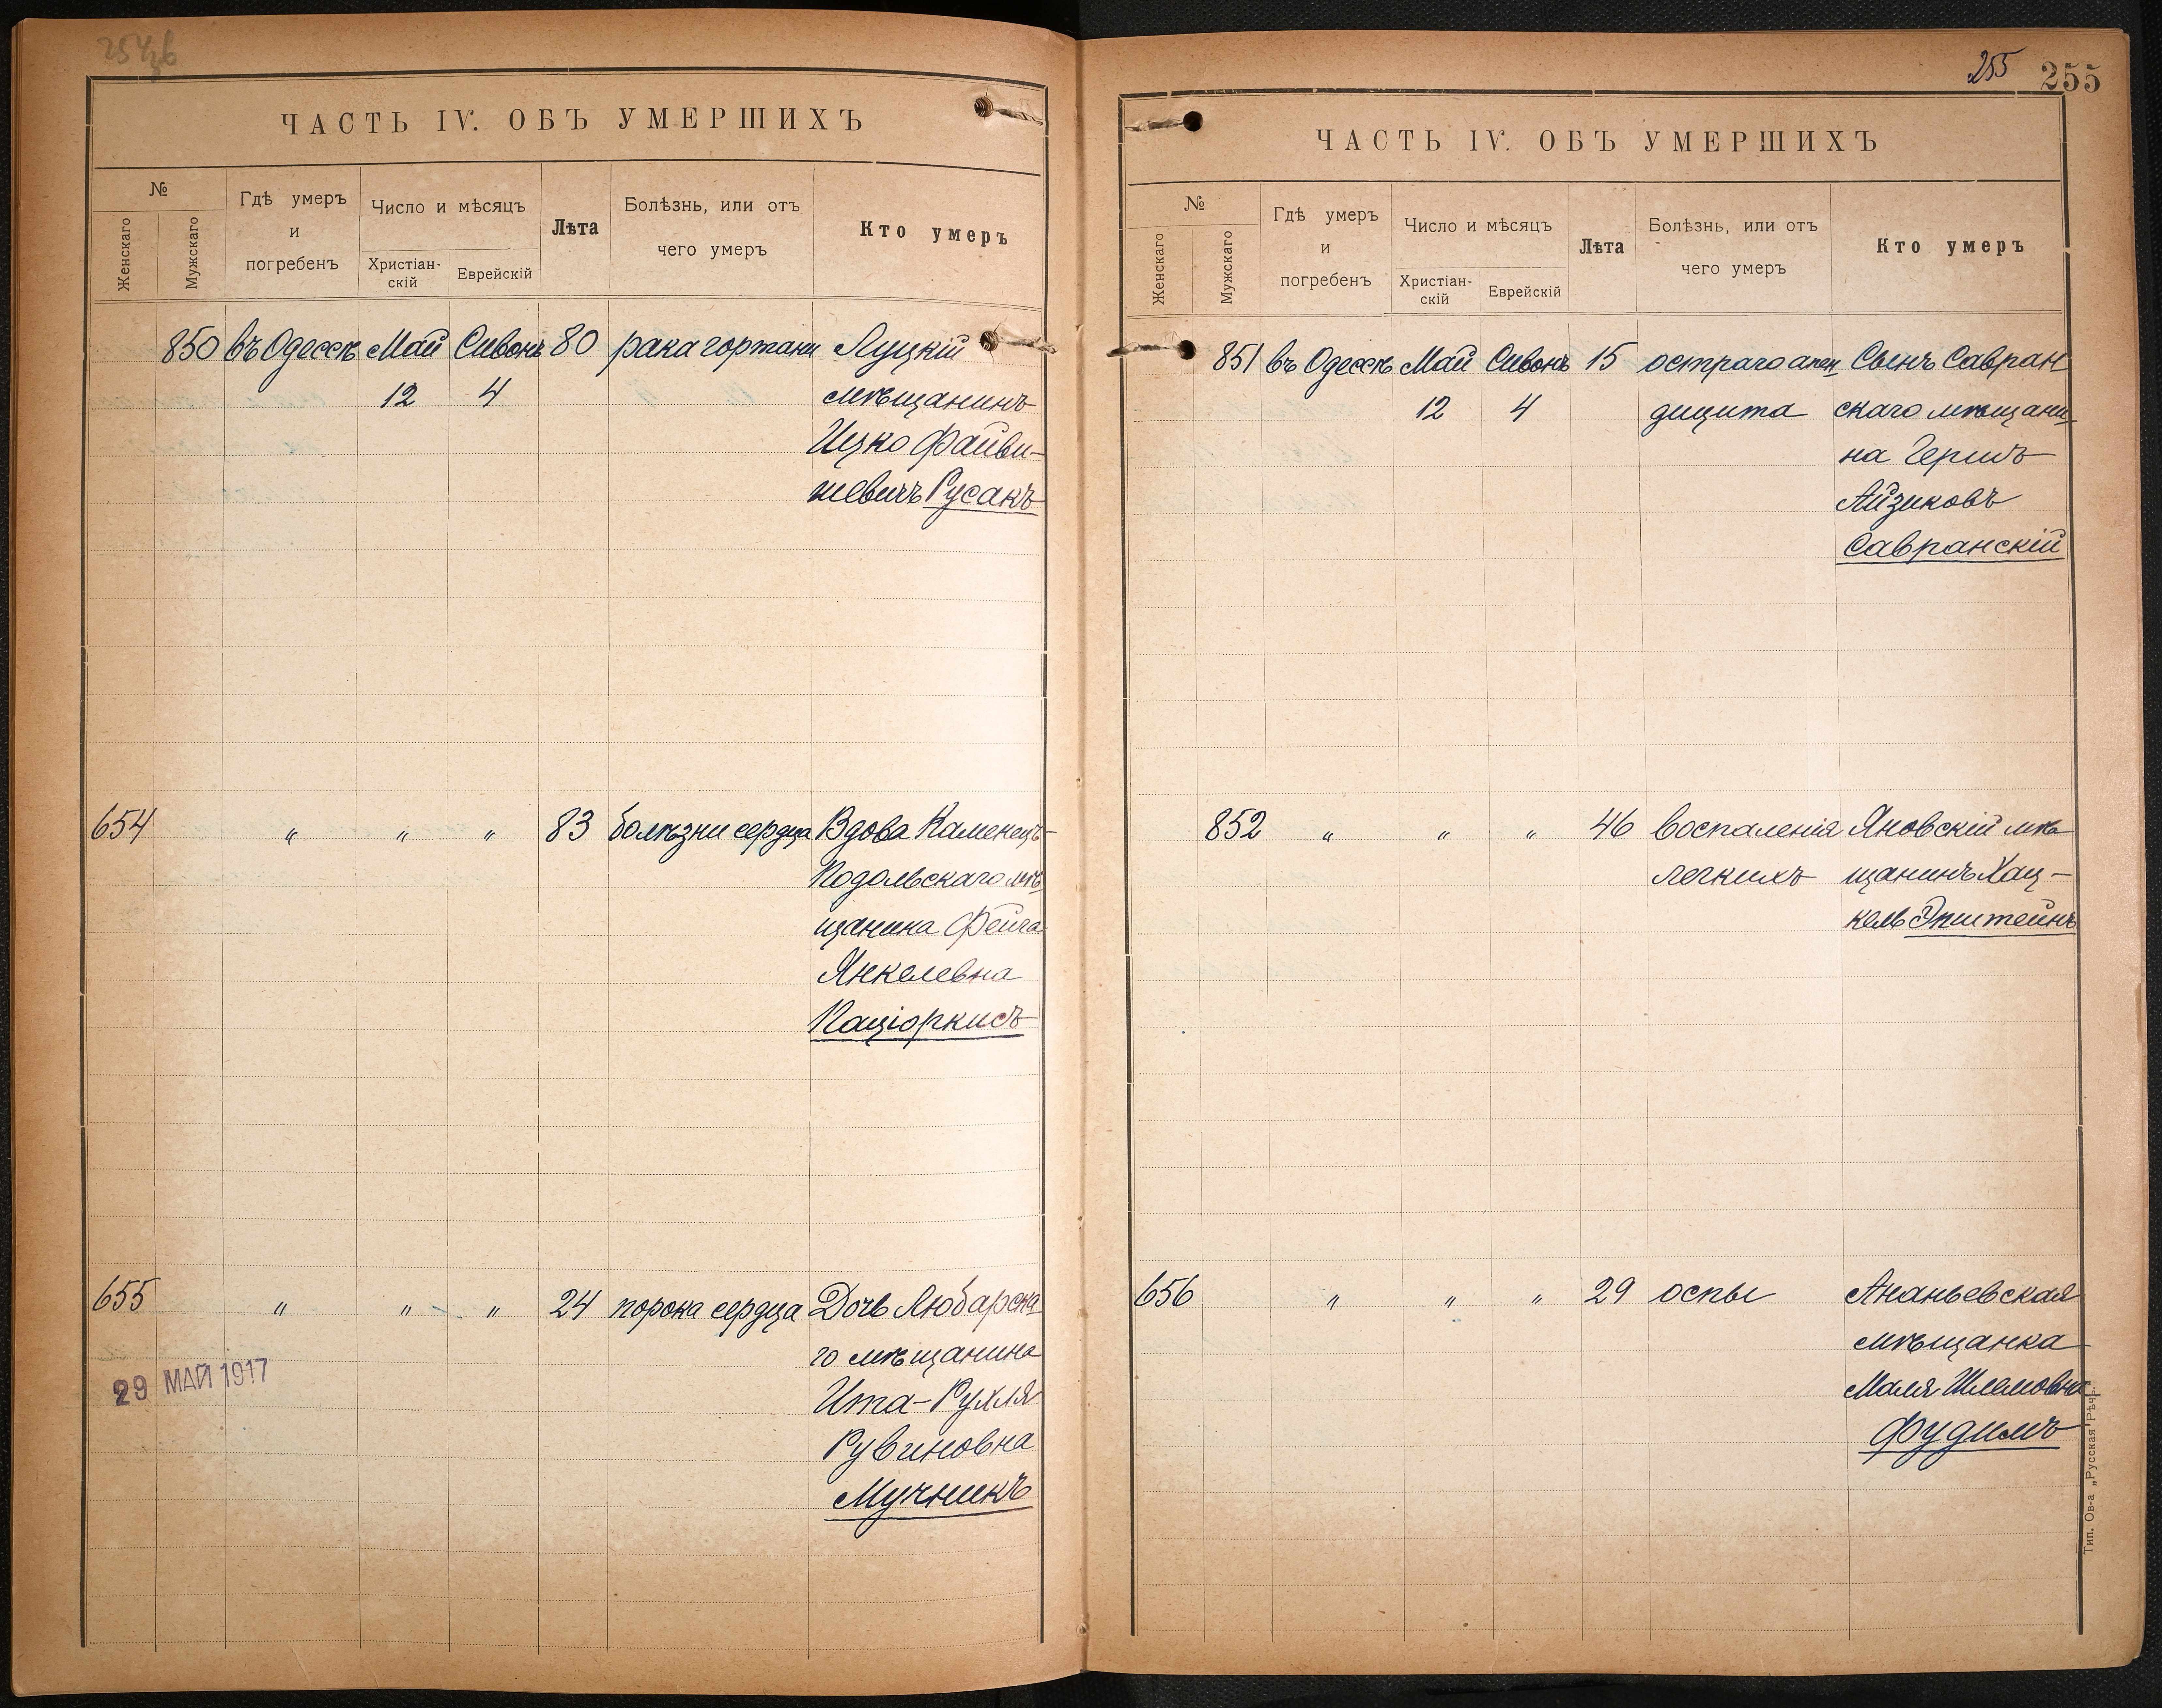 ЧАСТЬ IV. ОБЪ УМЕРШИХЪ
№
Женскаго
Мужскаго
Гдѣ умеръ
и
погребенъ
Число и мѣсяцъ
Христіан-
скій
Еврейскій
Лѣта
Болѣзнь, или отъ
чего умеръ
Кто умеръ
850 въ Одессѣ Май Сивонъ 80 рака гортани Луцкій
12 4 мѣщанинъ
Ицко Файви-
шевичъ Русакъ
654 " " " 83 болѣзни сердца Вдова Каменецъ-
Подольскаго мѣ
щанина Фейга
Янкелевна
Паціоркисъ
655 " " " 24 порока сердца Дочь Любарска
го мѣщанина
29 МАЙ 1917
Ита-Рухля
Рувиновна
Мучникъ
255 255
ЧАСТЬ IV. ОБЪ УМЕРШИХЪ
№
Женскаго
Мужскаго
Гдѣ умеръ
и
погребенъ
Число и мѣсяцъ
Христіан-
скій
Еврейскій
Лѣта
Болѣзнь, или отъ
чего умеръ
Кто умеръ
851 въ Одессѣ Май Сивонъ 15 остраго апен Сынъ Савран
12 4 дицита скаго мѣщани
на Гершъ
Айзиковъ
Савранскій
852 " " " 46 воспаленія Яновскій мѣ
легкихъ щанинъ Хац-
кель Эпштейнъ
656 " " " 29 оспы Ананьевская
мѣщанка
Маля Шлемовна
Фудимъ
Тип. Ов-а „Русская Рѣчь"